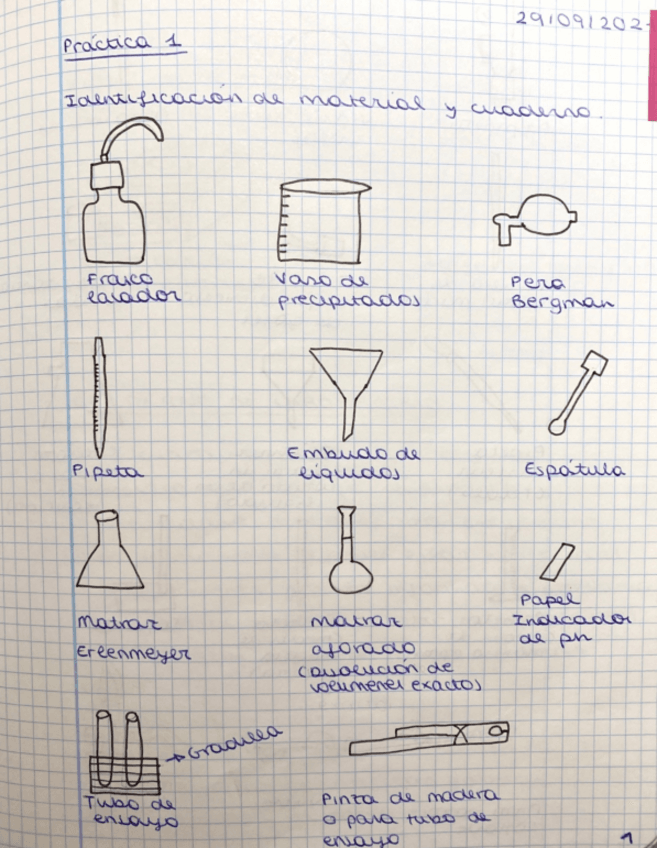 29/09/202
Práctica 1
Identificación de material y cuaderno.
Frasco
lavador
Vaso de
precipitados
Pera
Bergman
Pipeta
Embudo de
líquidos
Espátula
Matraz
Erlenmeyer
matraz
aforado
(disolución de
volúmenes exactos)
Papel
Indicador
de pH
→ Gradilla
Tubo de
ensayo
Pinza de madera
o para tubo de
ensayo
1